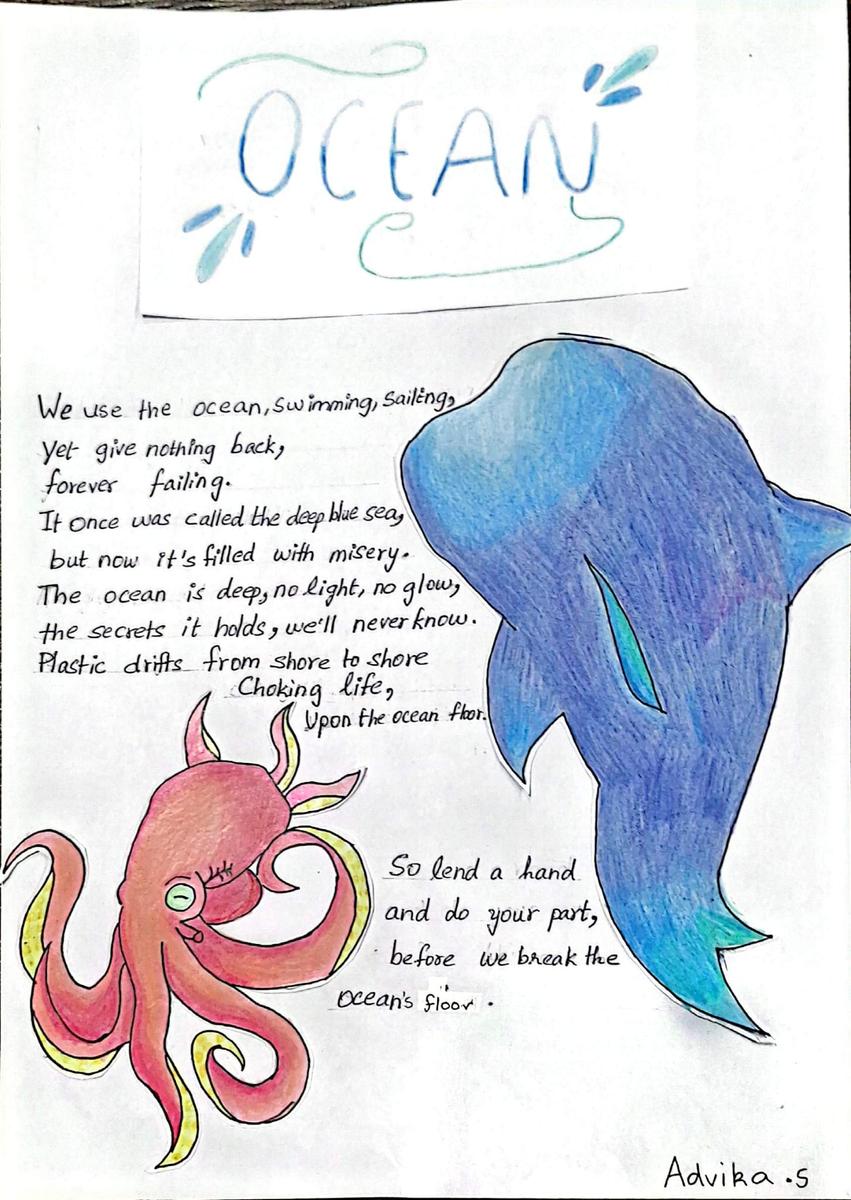 OCEAN
We use the ocean, swimming, sailing,
yet give nothing back,
forever failing.
It once was called the deep blue sea,
but now it's filled with misery.
The ocean is deep, no light, no glow,
the secrets it holds, we'll never know.
Plastic drifts from shore to shore
Choking life,
Upon the ocean floor.
So lend a hand
and do your part,
before we break the
Ocean's floor.
Advika .S